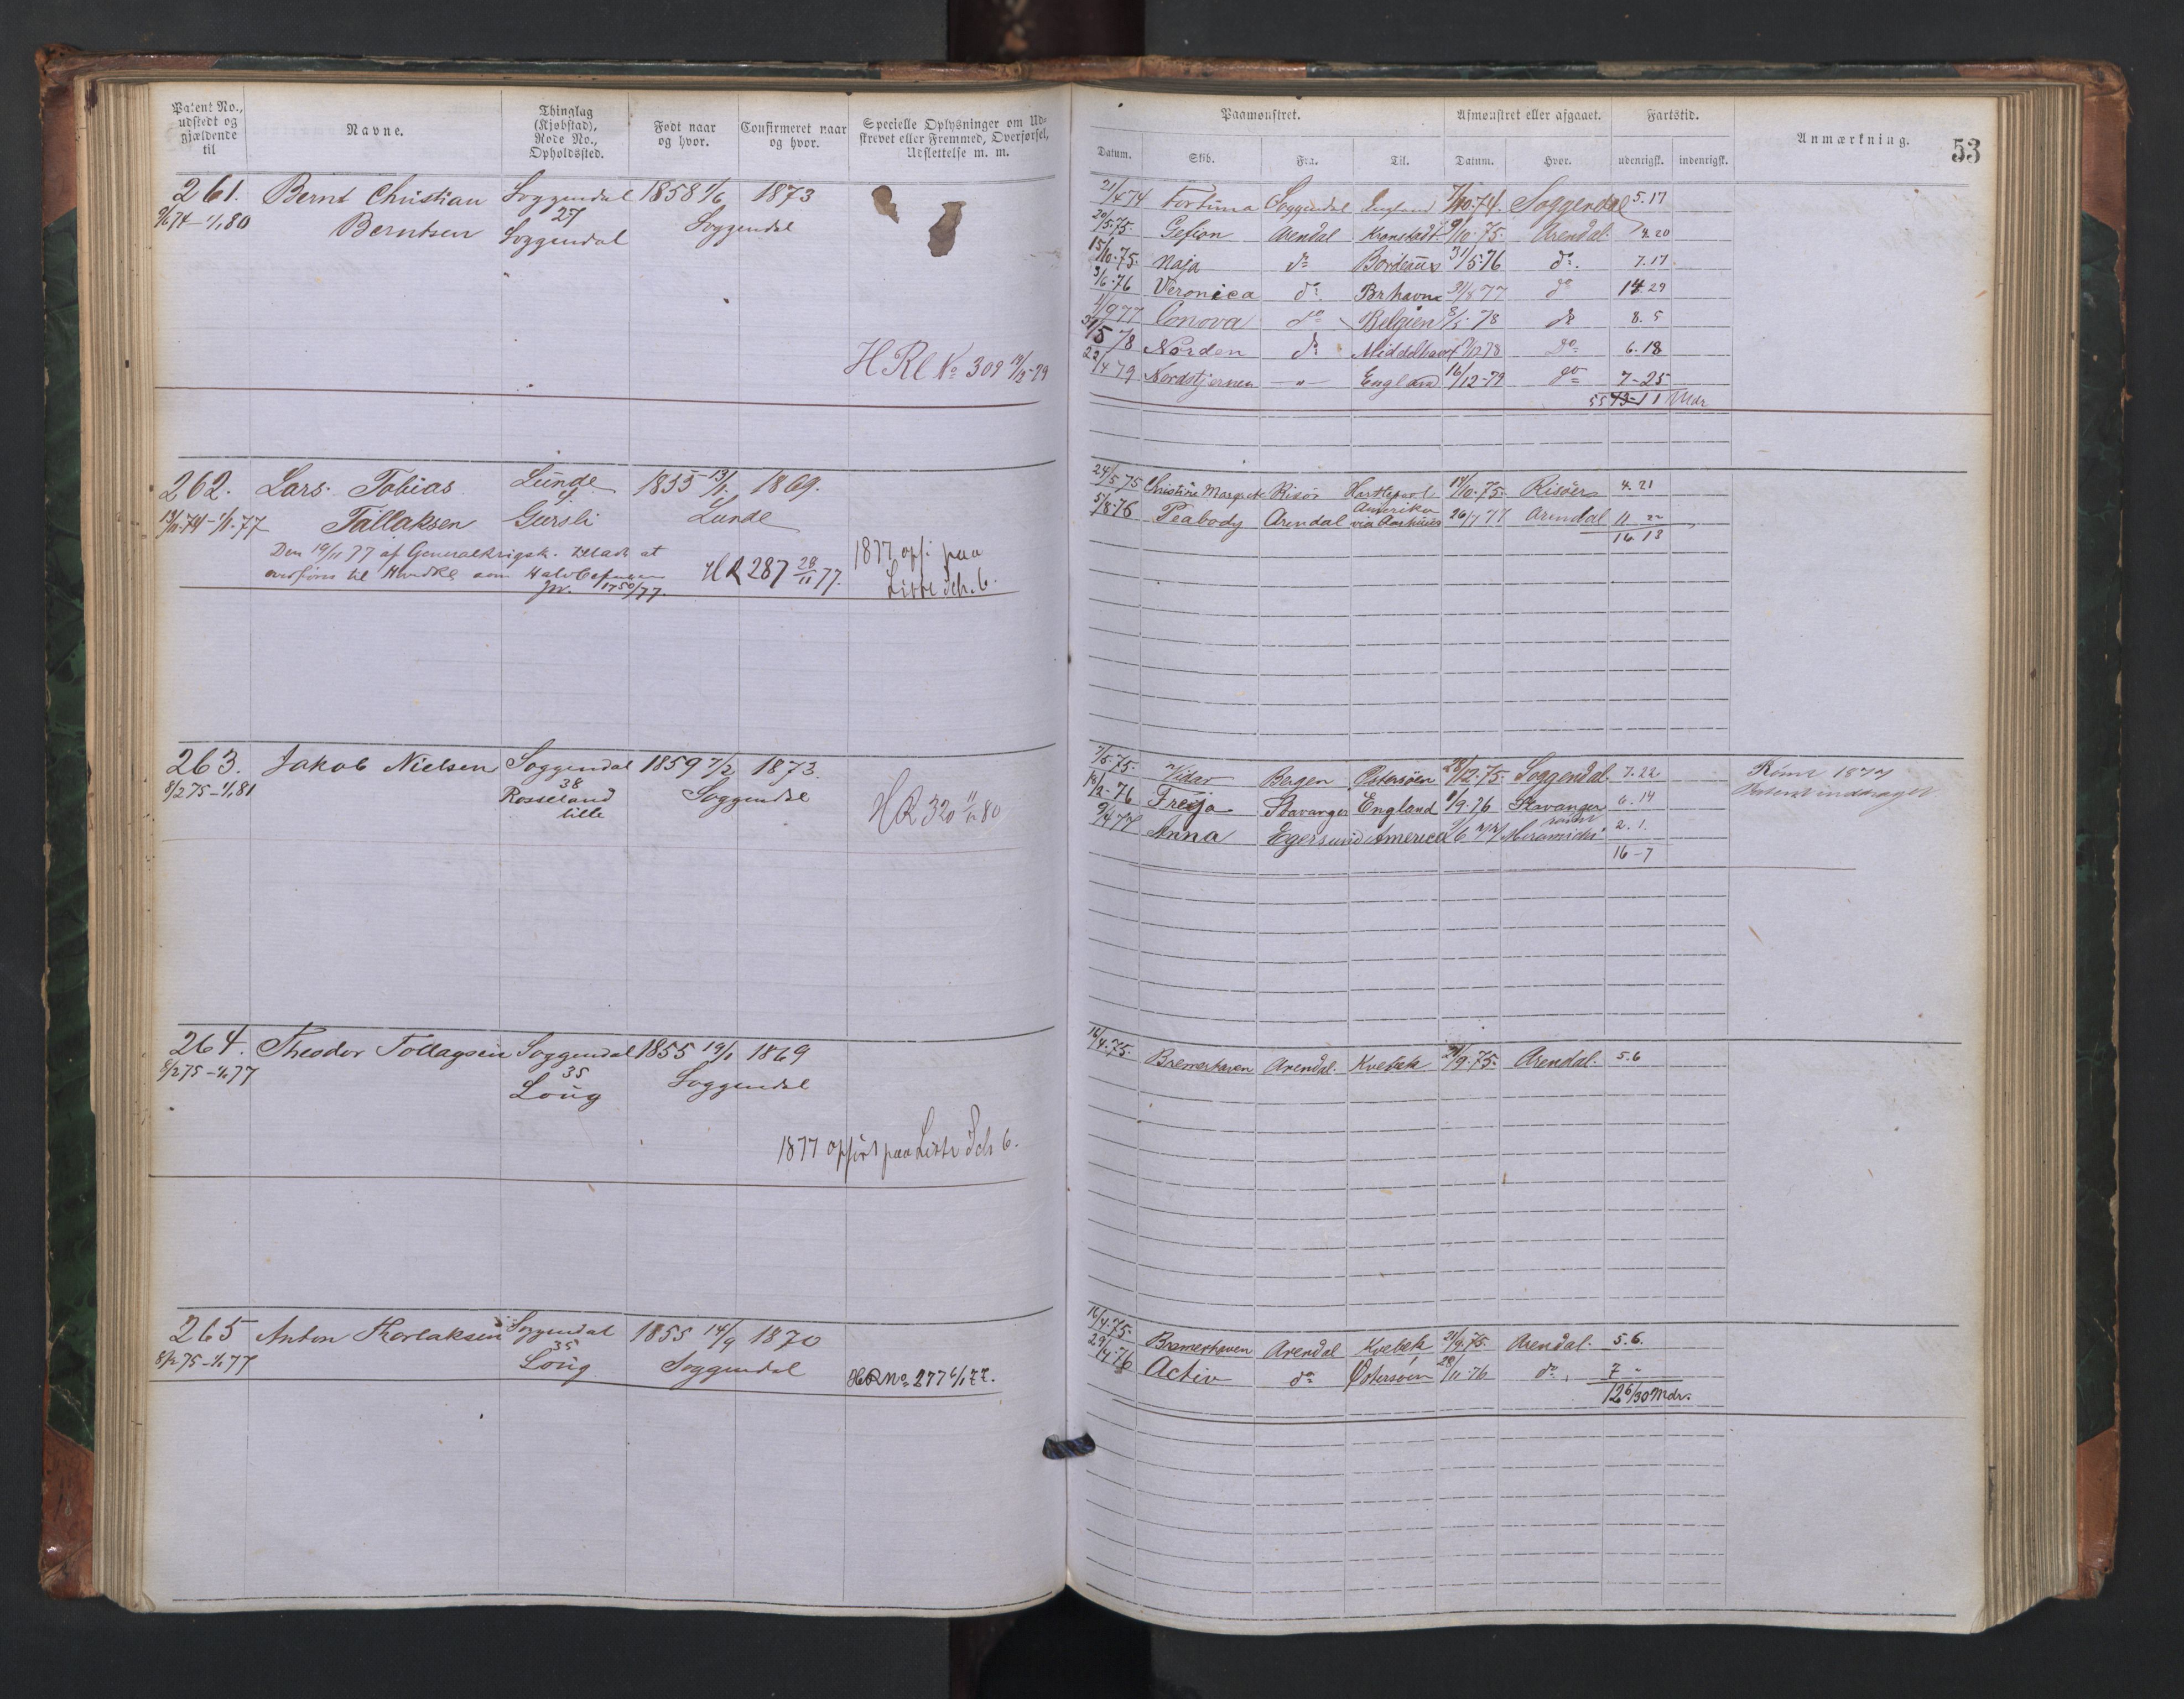 Patent No., udstedt og gjældende til
Navne.
Thinglag (Kjøbstad), Rode No., Opholdssted.
Født naar og hvor.
Confirmeret naar og hvor.
Specielle Oplysninger om Udstrevet eller Fremmed, Overførsel, Udslettelse m. m.
261. Bernt Christian Soggendal 1858 1873
Berntsen 27 Soggendal
Soggendal
HRl No 309 19/12-79
262. Lars Tobias Lunde 1855 13/1 1869.
Tallaksen Gursli Lunde
Den 19/11 77 af Generalkrigsk. tilladt at
HR 287 28/11 77.
1877 opf. paa
Liste Sch. 6.
263. Jakob Nielsen Soggendal 1859 7/2 1873.
8/2 75 – 1/1 81 38 Soggendal
Rosseland
lille
HR 320 11/11 80
264. Theodor Tollagsen Soggendal 1855 19/1 1869
8/2 75 – 1/1 77 35 Soggendal
Loug
1877 opført paa Liste Sch 6.
265 Anton Thorlaksen Soggendal 1855 14/9 1870
8/2 75 – 1/1 77 35
Loug Soggendal
HR No 277 6/1 77.
53
Paamønstret.
Afmønstret eller afgaaet.
Fartstid.
Anmærkning.
Datum. Skib. Fra. Til. Datum. Hvor. udenrigsk. indenrigsk.
21/4 74 Fortuna Soggendal England 7/10.74. Soggendal 5.17
20/5.75. Gefion Arendal Kronstadt 9/10.75. Arendal 4.20
15/10.75. Naja do Bordeaux 31/5.76 do. 7.17
3/6.76 Veronica do Brhavn 31/8 77 do 14.29
1/9 77 Conova do Belgien 8/5.78 do 8.5
31/5 78 Norden do Middelhavet 78 Do 6.18
22/4 79 Nordstjernen —"— England 16/12-79 do 7-25
55 11 Mdr
24/5 75 Christine Margrete Risør Hartlepool 14/10.75. Risøer 4.21
5/8.76 Peabody Arendal Amerika via Aarhuus 26/7 77 Arendal 11.22
16.13
7/5.75. Vidar Bergen Østersøen 28/12.75. Soggendal 7.22
18/2.76 Freija Stavanger England 1/9.76 Stavanger 6.14
9/4 77 Anna Egersund America Miramichi rømt 2.1.
16-7
Rømt 1877
Patent inddraget
16/4.75. Bremerhaven Arendal. Kvebek 21/9.75. Arendal. 5.6
16/4.75. Bremerhaven Arendal Kvebek 21/9.75. Arendal. 5.6.
29/4.76 Activ do Østersøen 28/11.76 do. 7 "
12 6/30 Mdr.